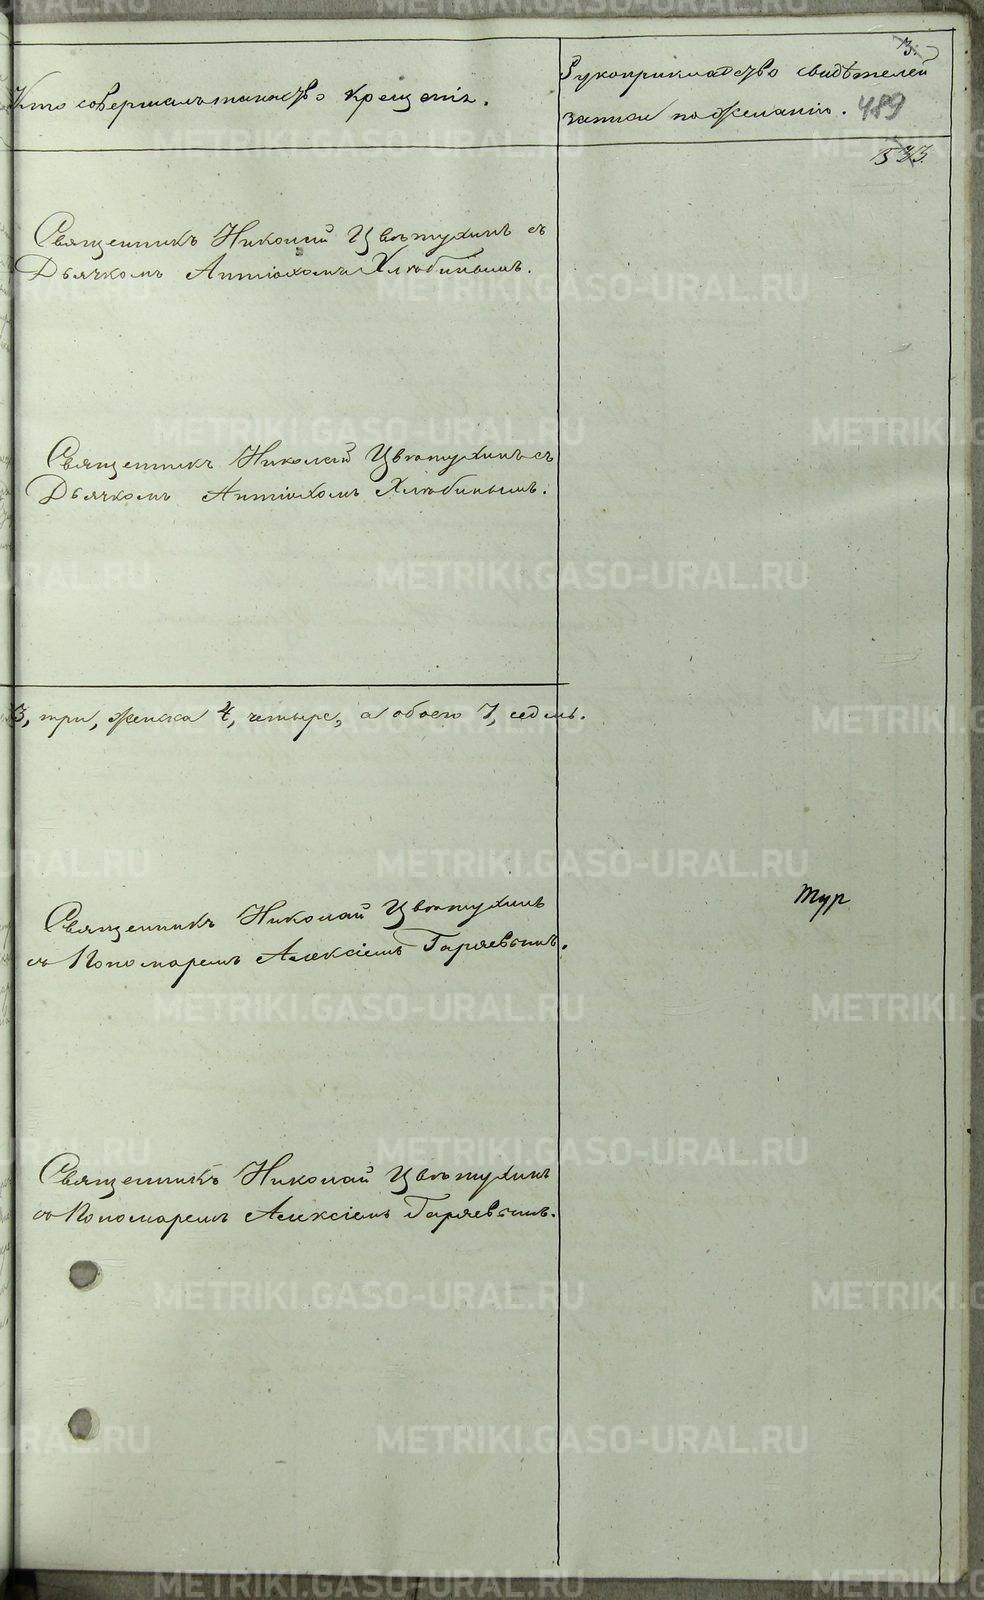 3.
Кто совершалъ таинство крещенія.
Рукоприкладство свидѣтелей
записи по желанію. 489
533.
Священникъ Николай Цвѣтухинъ съ
Дьячкомъ Антіохомъ Хлѣбинымъ.
Священникъ Николай Цвѣтухинъ съ
Дьячкомъ Антіохомъ Хлѣбинымъ.
3, три, женска 4, четыре, а обоего 7, седмь.
Священникъ Николай Цвѣтухинъ
съ Пономаремъ Алексіемъ Гаряевымъ.
Тур
Священникъ Николай Цвѣтухинъ
съ Пономаремъ Алексіемъ Гаряевымъ.
METRIKI.GASO-URAL.RU